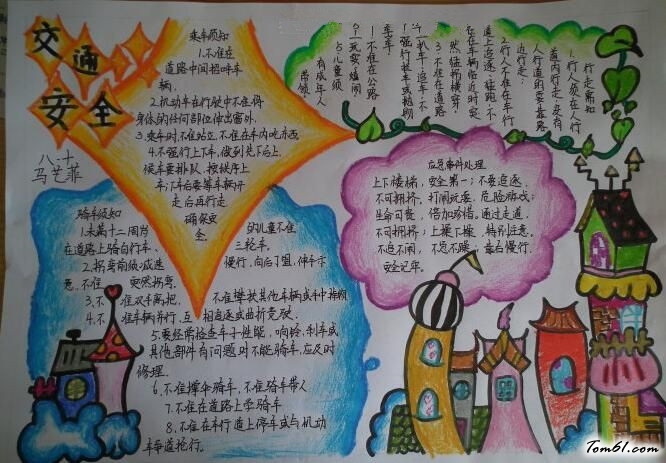 交通
安全
八.十
马艺菲
乘车须知
1.不准在
道路中间招呼车
辆.
2.机动车在行驶中不准将
身体的任何部位伸出窗外.
3.乘车时,不准站立,不准在车内吃东西
4.不强行上下车,做到先下后上,
候车要排队,按秩序上
车;下车后要等车辆开
走后再行走,
确保安
全.
行走需知
1.行人须在人行
道内行走,没有
人行道的要靠路
边行走.
2.行人不准在车行
道上追逐,猛跑,不
准在车辆临近时突
然猛拐横穿!
3.不准在道路
上扒车,追车,不
强行拦车或抛物
1.不准在公路
5.儿童须
有成年人
带领!
应急事件处理
上下楼梯,安全第一;不要追逐,
不可拥挤,打闹玩耍,危险游戏;
生命可贵,倍加珍惜,通过走道,
不可拥挤;上操下操,特别注意,
不追不闹,不急不躁;靠右慢行,
安全记牢.
骑车须知
1.未满十二周岁的儿童不准
在道路上骑自行车、三轮车.
2.拐弯前须减速慢行,向后了望,伸手示
意,不准突然拐弯.
3.不准双手离把,不准攀扶其他车辆或手中持物
4.不准车辆并行,互相追逐或曲折竞驶.
5.要经常检查车子性能,响铃,刹车或
其他部件有问题时不能骑车,应及时
修理.
6.不准撑伞骑车,不准骑车带人
7.不准在道路上学骑车
8.不准在车行道上停车或与机动
车争道抢行.
Tom61.com